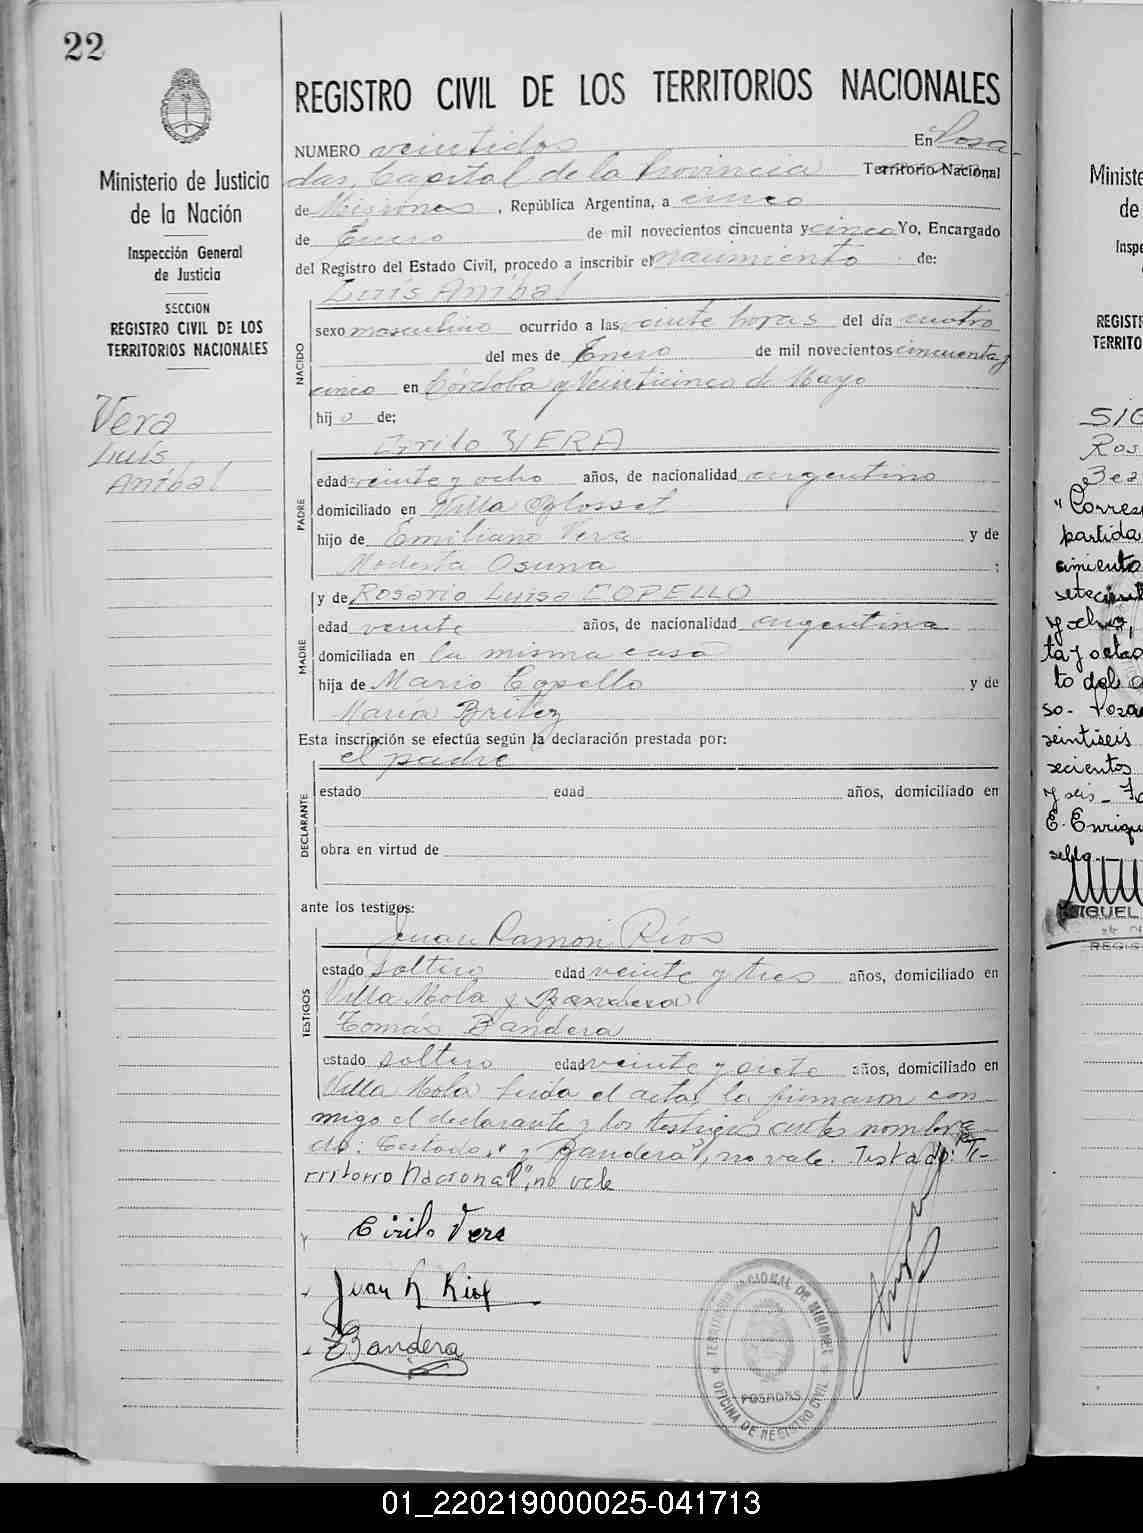 22
Ministerio de Justicia
de la Nación
Inspección General
de Justicia
SECCION
REGISTRO CIVIL DE LOS
TERRITORIOS NACIONALES
Vera
Luis
Aníbal
REGISTRO CIVIL DE LOS TERRITORIOS NACIONALES
NUMERO veintidos En Posa-
das, Capital de la Provincia Territorio Nacional
de Misiones, República Argentina, a cinco
de Enero de mil novecientos cincuenta y cinco Yo, Encargado
del Registro del Estado Civil, procedo a inscribir el nacimiento de:
Luis Aníbal
NACIDO
sexo masculino ocurrido a las veinte horas del día cuatro
del mes de Enero de mil novecientos cincuenta y
cinco en Córdoba y Veinticinco de Mayo
hijo de;
Cirilo VERA
PADRE
edad veinte y ocho años, de nacionalidad argentino
domiciliado en Villa
hijo de Emiliano Vera y de
Modesta Osuna ;
MADRE
y de Rosario Luisa COPELLO
edad veinte años, de nacionalidad argentina
domiciliada en la misma casa
hija de Mario Copello y de
María Britez
Esta inscripción se efectúa según la declaración prestada por:
el padre
DECLARANTE
estado edad años, domiciliado en
obra en virtud de
ante los testigos:
Juan Ramón Ríos
TESTIGOS
estado soltero edad veinte y tres años, domiciliado en
Villa Mola y Bandera
Tomás Bandera
estado soltero edad veinte y siete años, domiciliado en
Villa Mola leída el acta, la firmaron con-
migo el declarante y los testigos antes nombra-
dos: Testado: "y Bandera", no vale. Testado: "Te-
rritorio Nacional", no vale
Cirilo Vera
Juan R Rios
TBandera
TERRITORIO NACIONAL DE MISIONES
POSADAS
OFICINA DE REGISTRO CIVIL
Ministe
de
Insp
REGISTR
TERRITO
SIG
Ros
"Corres
partida
cimiento
y ocho,
so- Posa
E. Enriqu
MIGUEL
REGIS
01_220219000025-041713